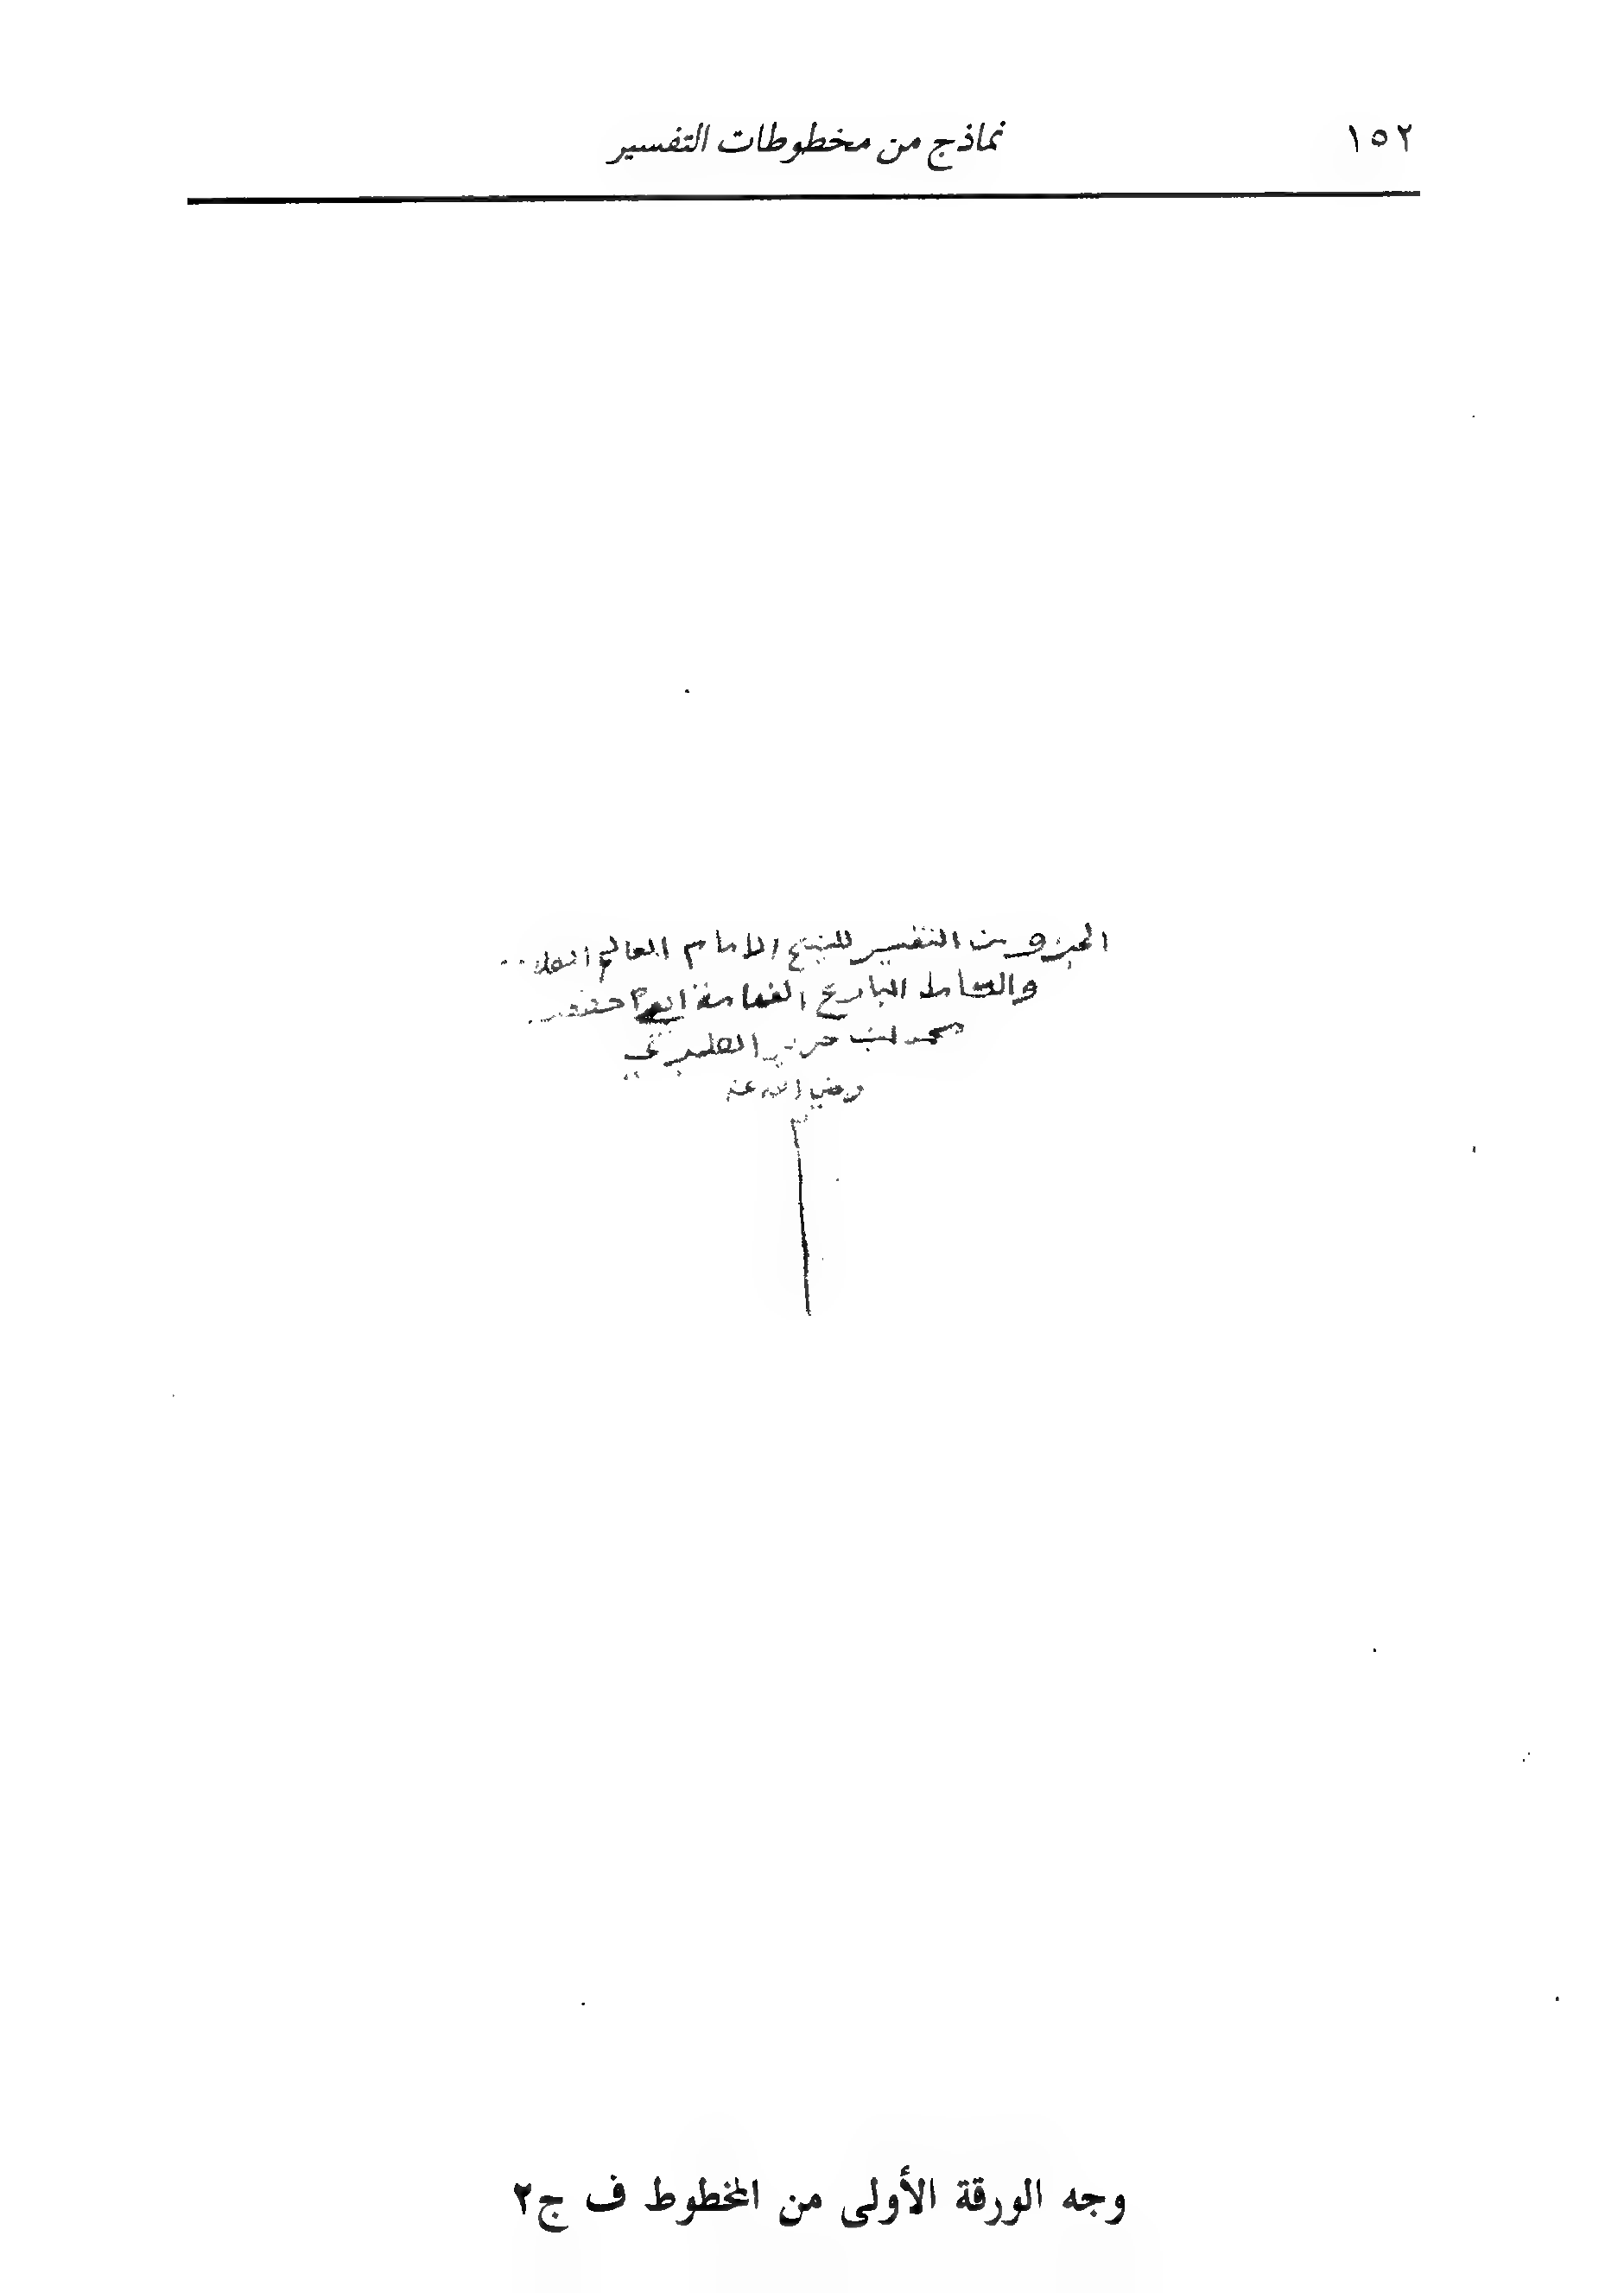 ١٥٢
نماذج من مخطوطات التفسير
الجزو من التفسير للشيخ الامام العالم
والكامل البارع الفهامة ابي
محمد ابن جرير الطبري
رضي الله عنه
وجه الورقة الأولى من المخطوط ف ج٢